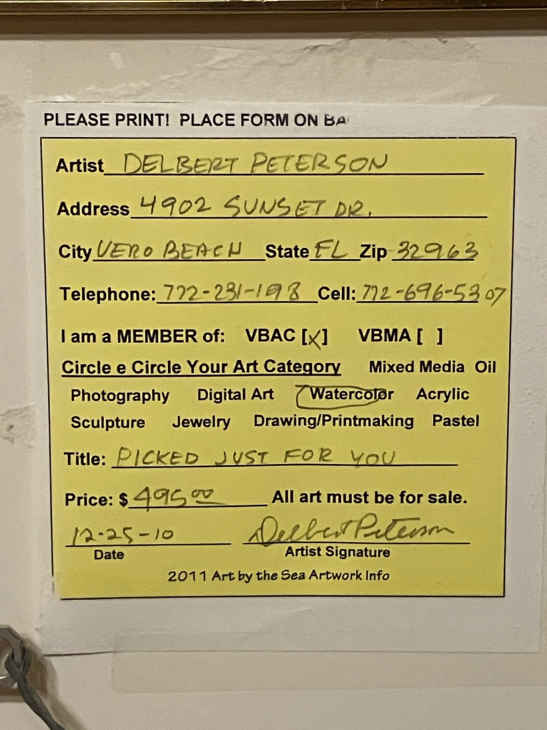 PLEASE PRINT! PLACE FORM ON BA
Artist DELBERT PETERSON
Address 4902 SUNSET DR.
City VERO BEACH State FL Zip 32963
Telephone: 772-231-198 Cell: 772-696-5307
I am a MEMBER of: VBAC [X] VBMA [ ]
Circle e Circle Your Art Category Mixed Media Oil
Photography Digital Art Watercolor Acrylic
Sculpture Jewelry Drawing/Printmaking Pastel
Title: PICKED JUST FOR YOU
Price: $ 495.00 All art must be for sale.
12-25-10 Delbert Peterson
Date Artist Signature
2011 Art by the Sea Artwork Info